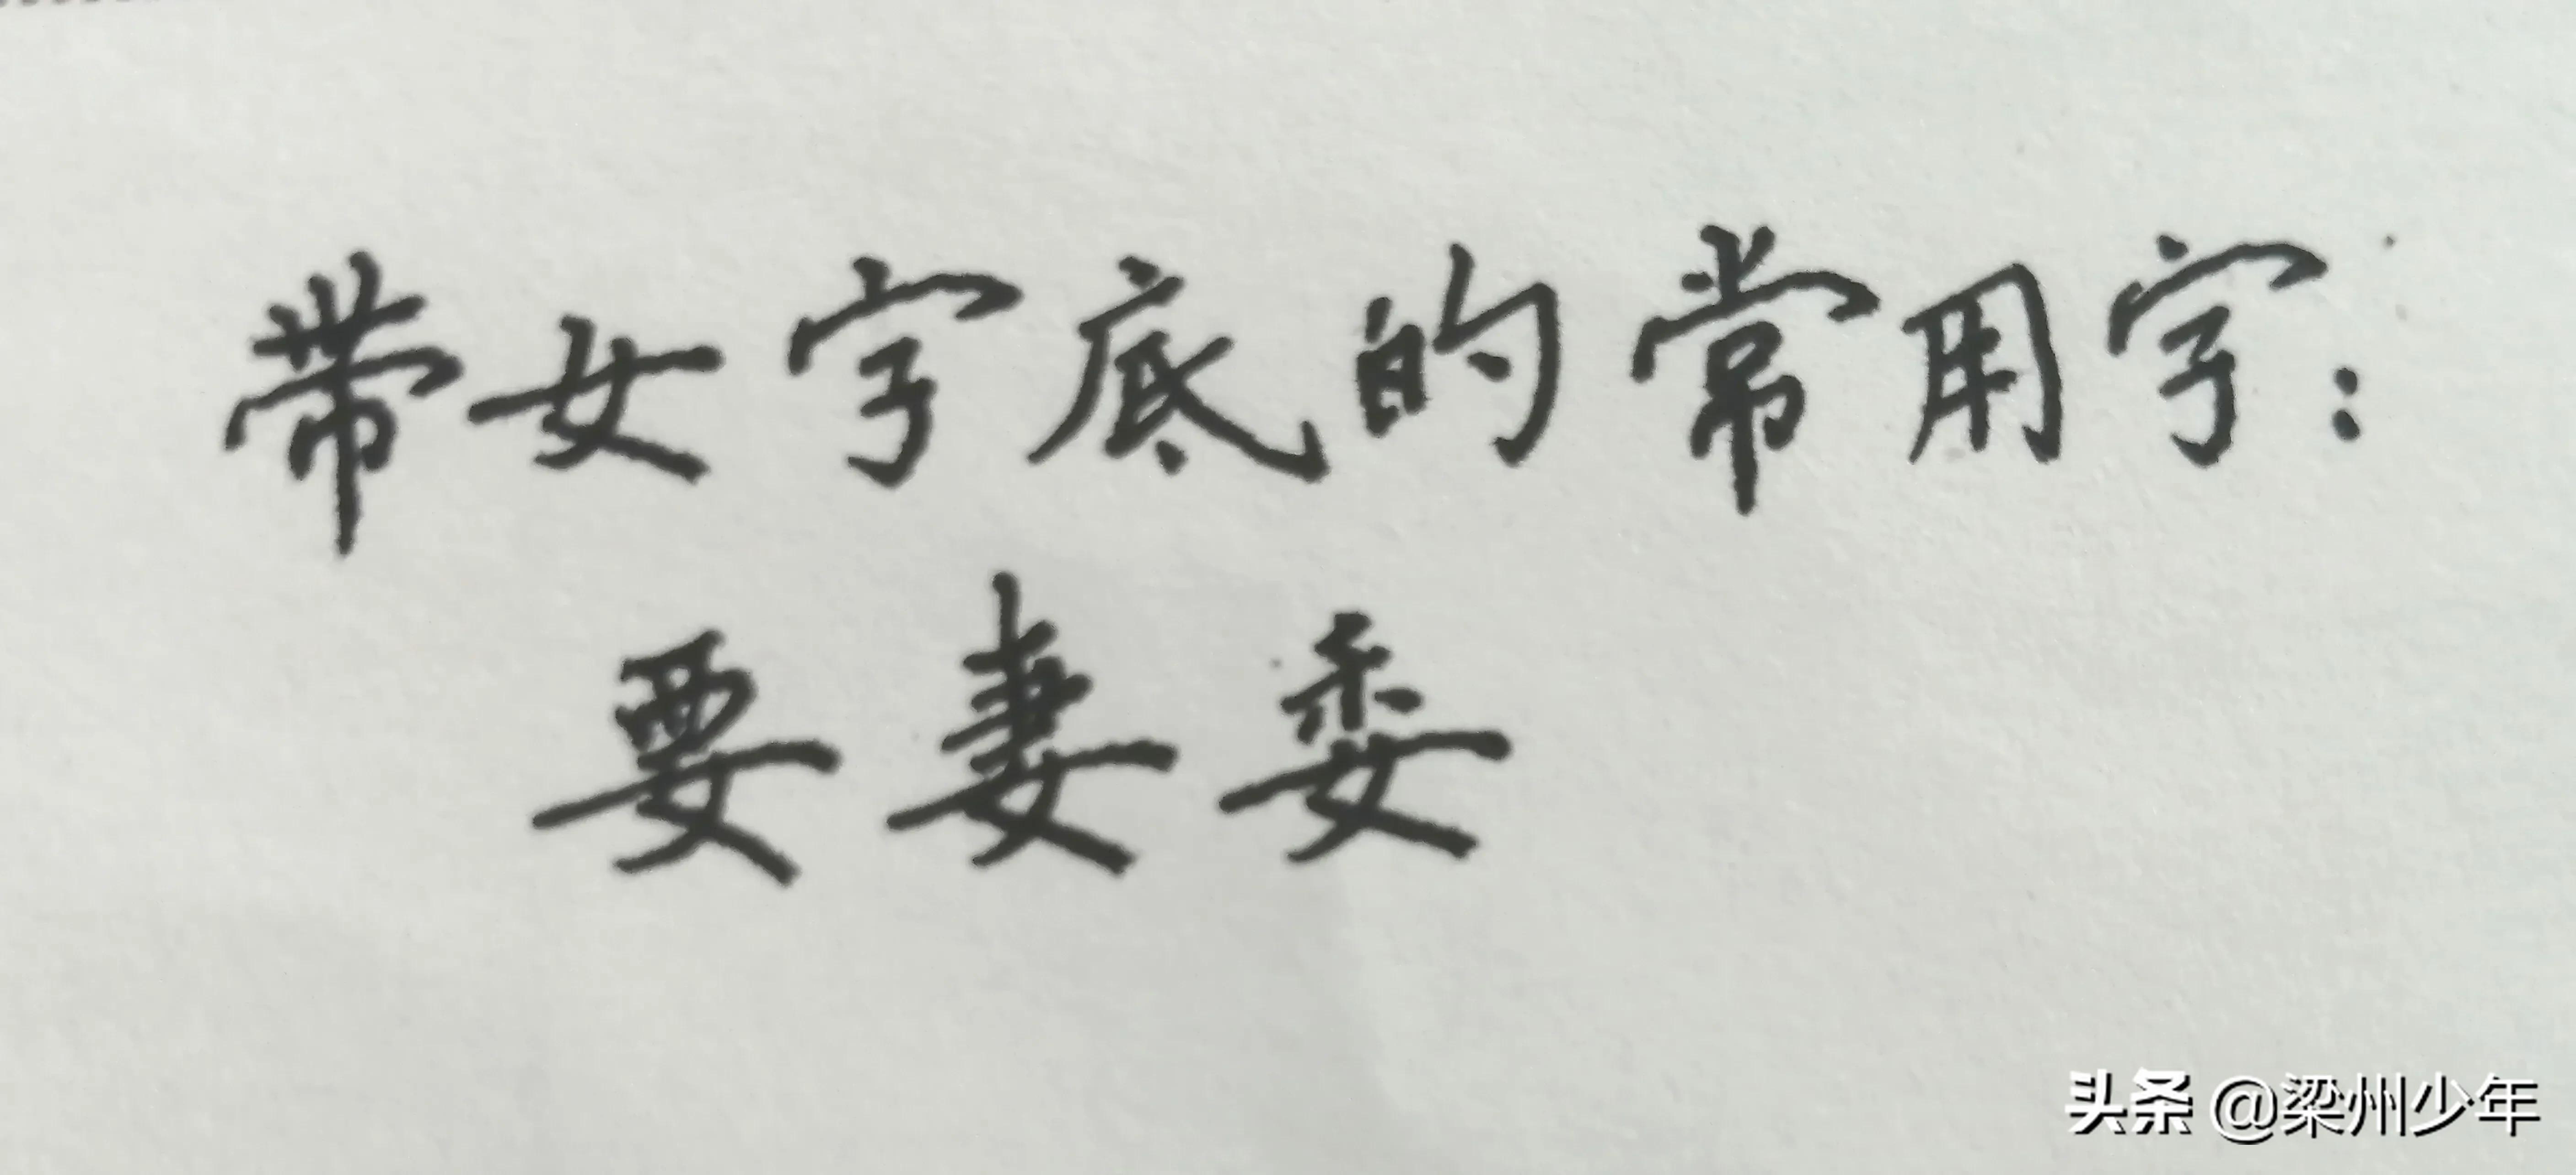 带女字底的常用字：
要妻委
头条 @梁州少年